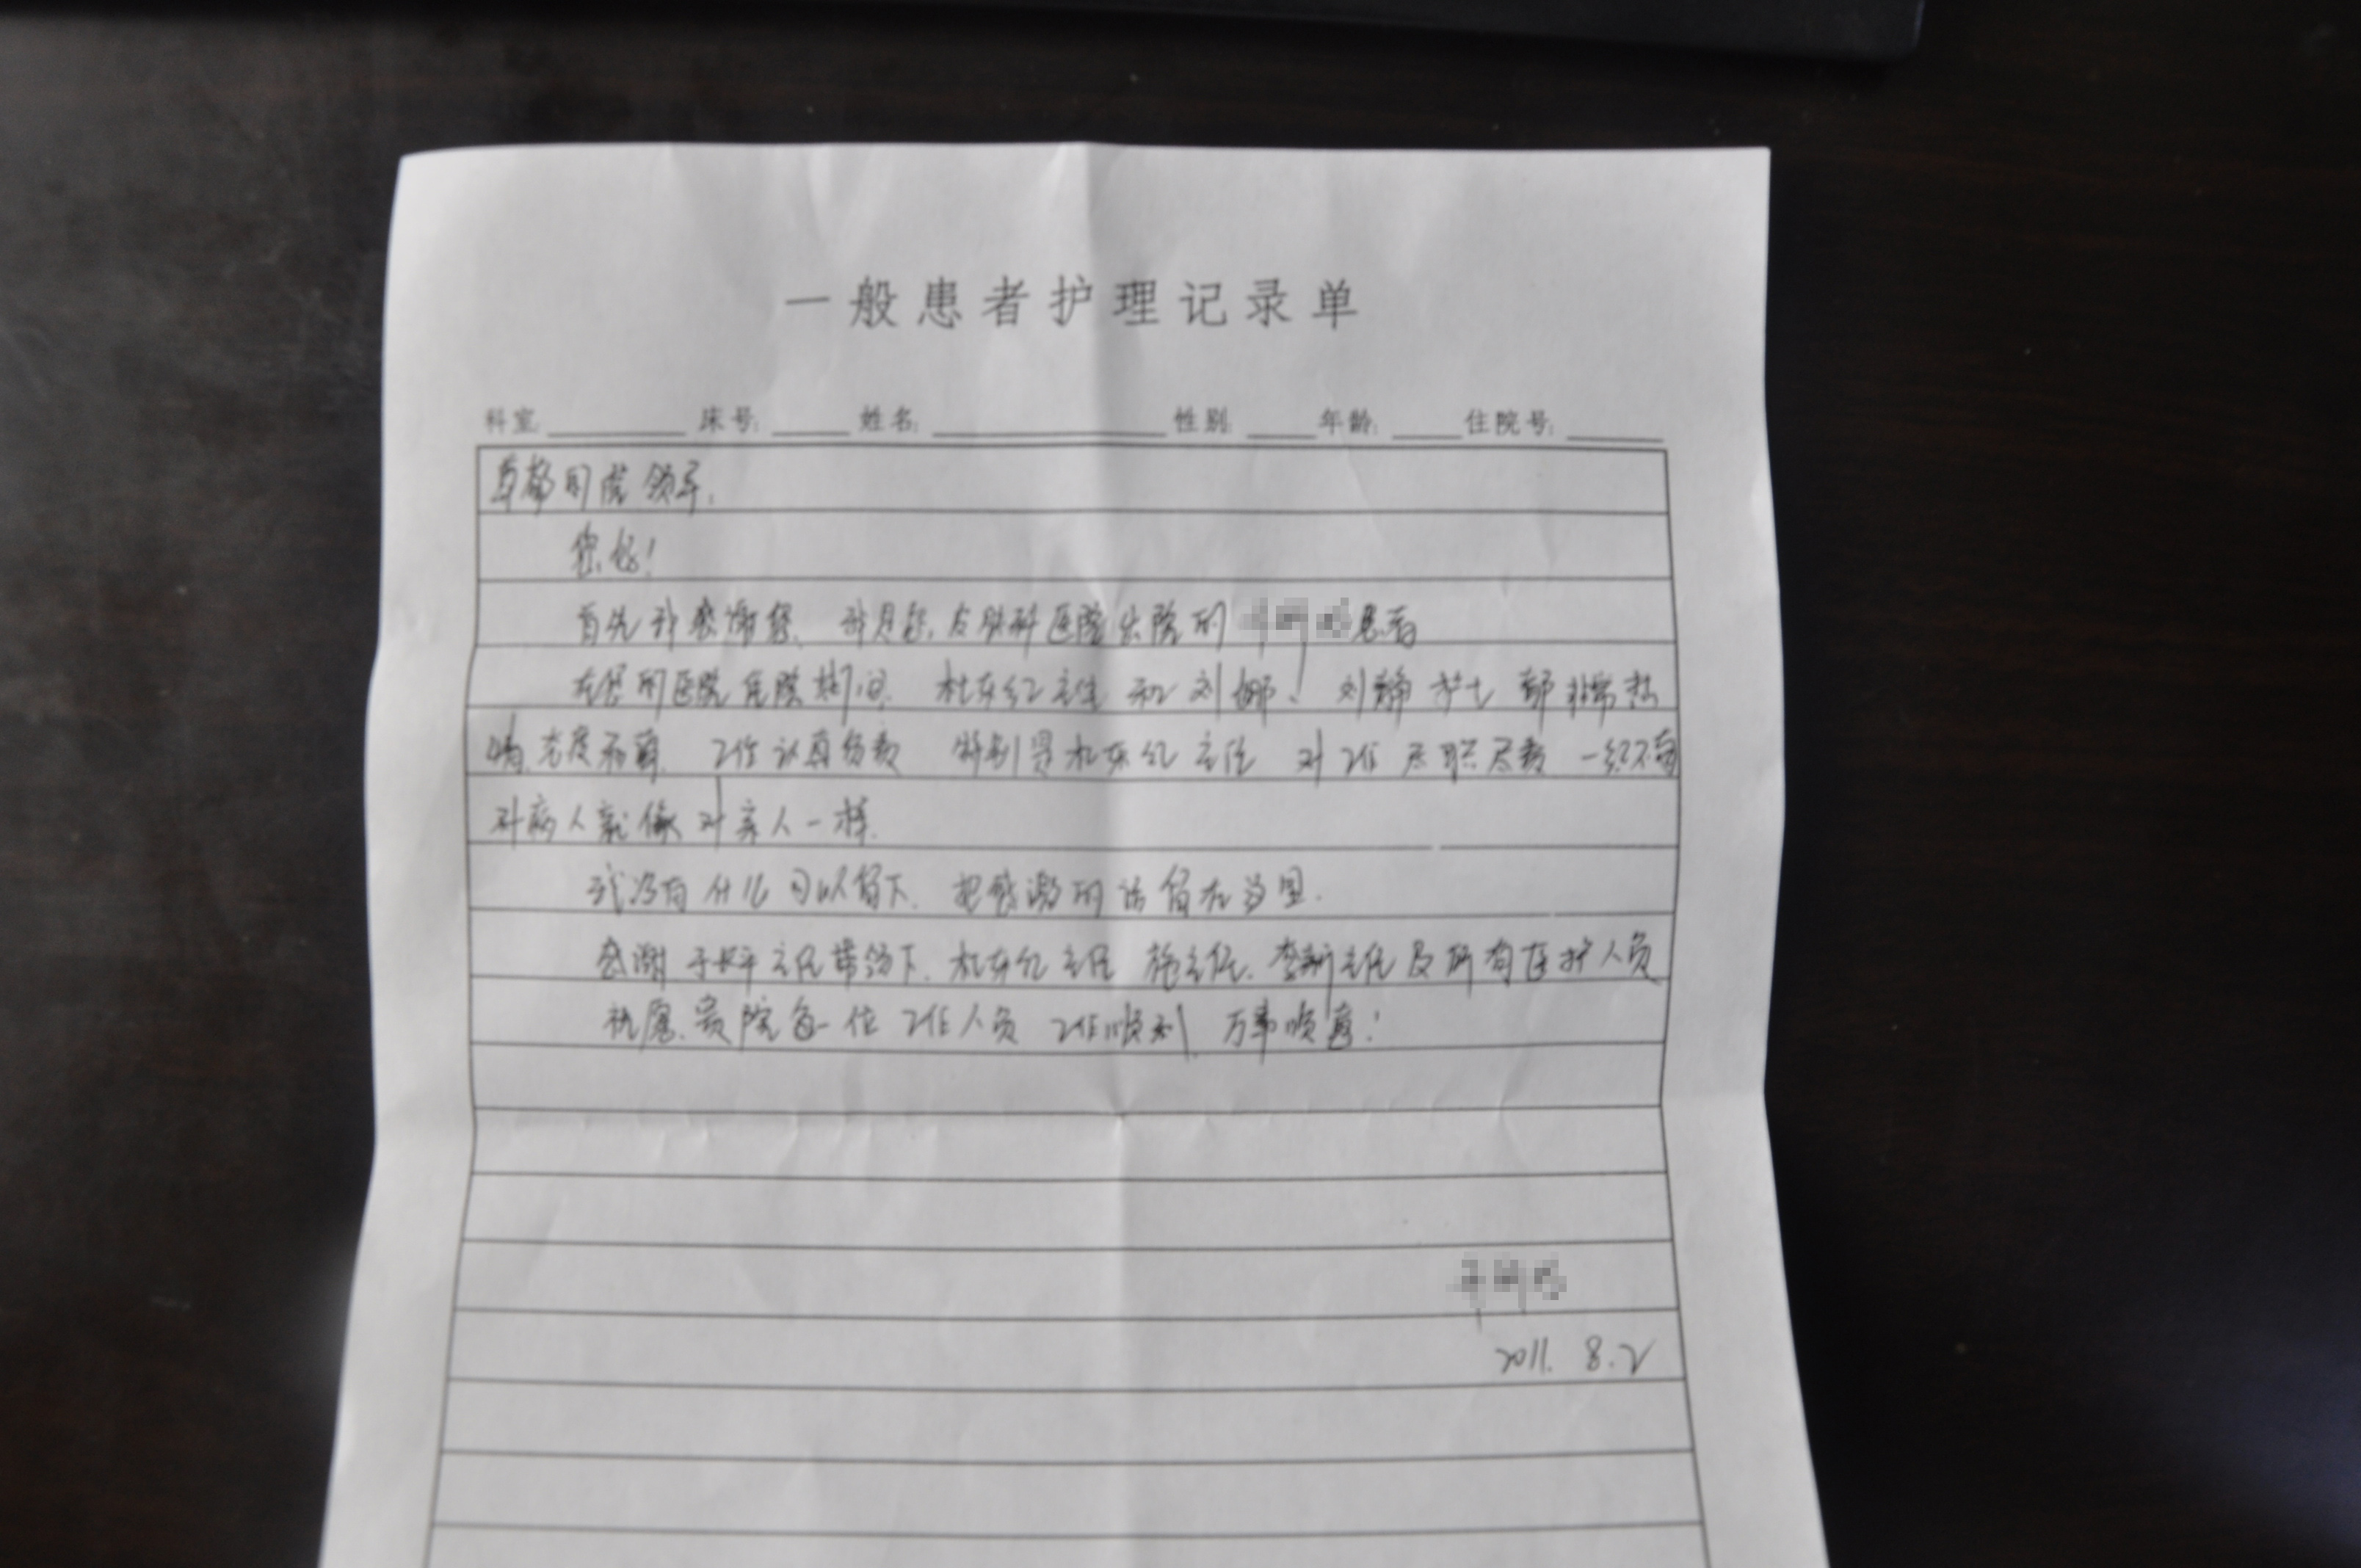 一般患者护理记录单
科室: 床号: 姓名: 性别: 年龄: 住院号:
尊敬的院领导:
您好!
首先我感谢您. 我是 医院出院的 患者
在您的医院住院期间. 杜东红主任和刘娜、刘静护士都非常热
情.态度和蔼. 工作认真负责 特别是杜东红主任 对工作尽职尽责
对病人就像对亲人一样.
我没有什么可以留下. 把感激的话留在这里.
感谢 主任带领下. 杜东红主任 主任. 主任及所有医护人员
祝愿.贵院每一位工作人员 工作顺利 万事顺意!
2011. 8.2